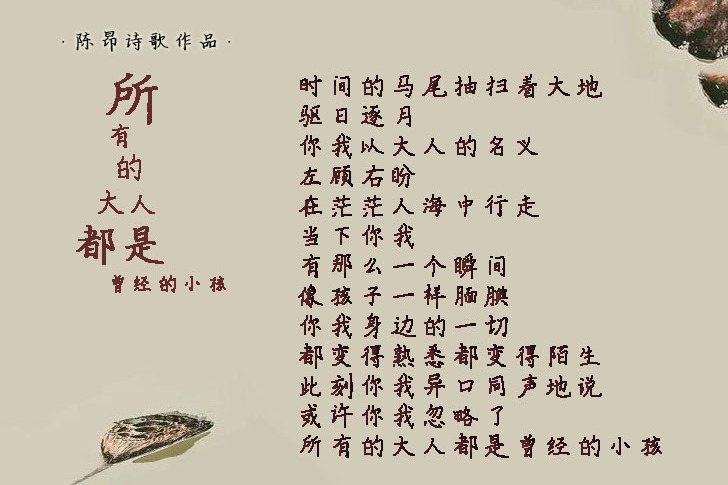 ·陈昂诗歌作品·
所
有
的
大人
都是
曾经的小孩
时间的马尾抽扫着大地
驱日逐月
你我以大人的名义
左顾右盼
在茫茫人海中行走
当下你我
有那么一个瞬间
像孩子一样腼腆
你我身边的一切
都变得熟悉都变得陌生
此刻你我异口同声地说
或许你我忽略了
所有的大人都是曾经的小孩